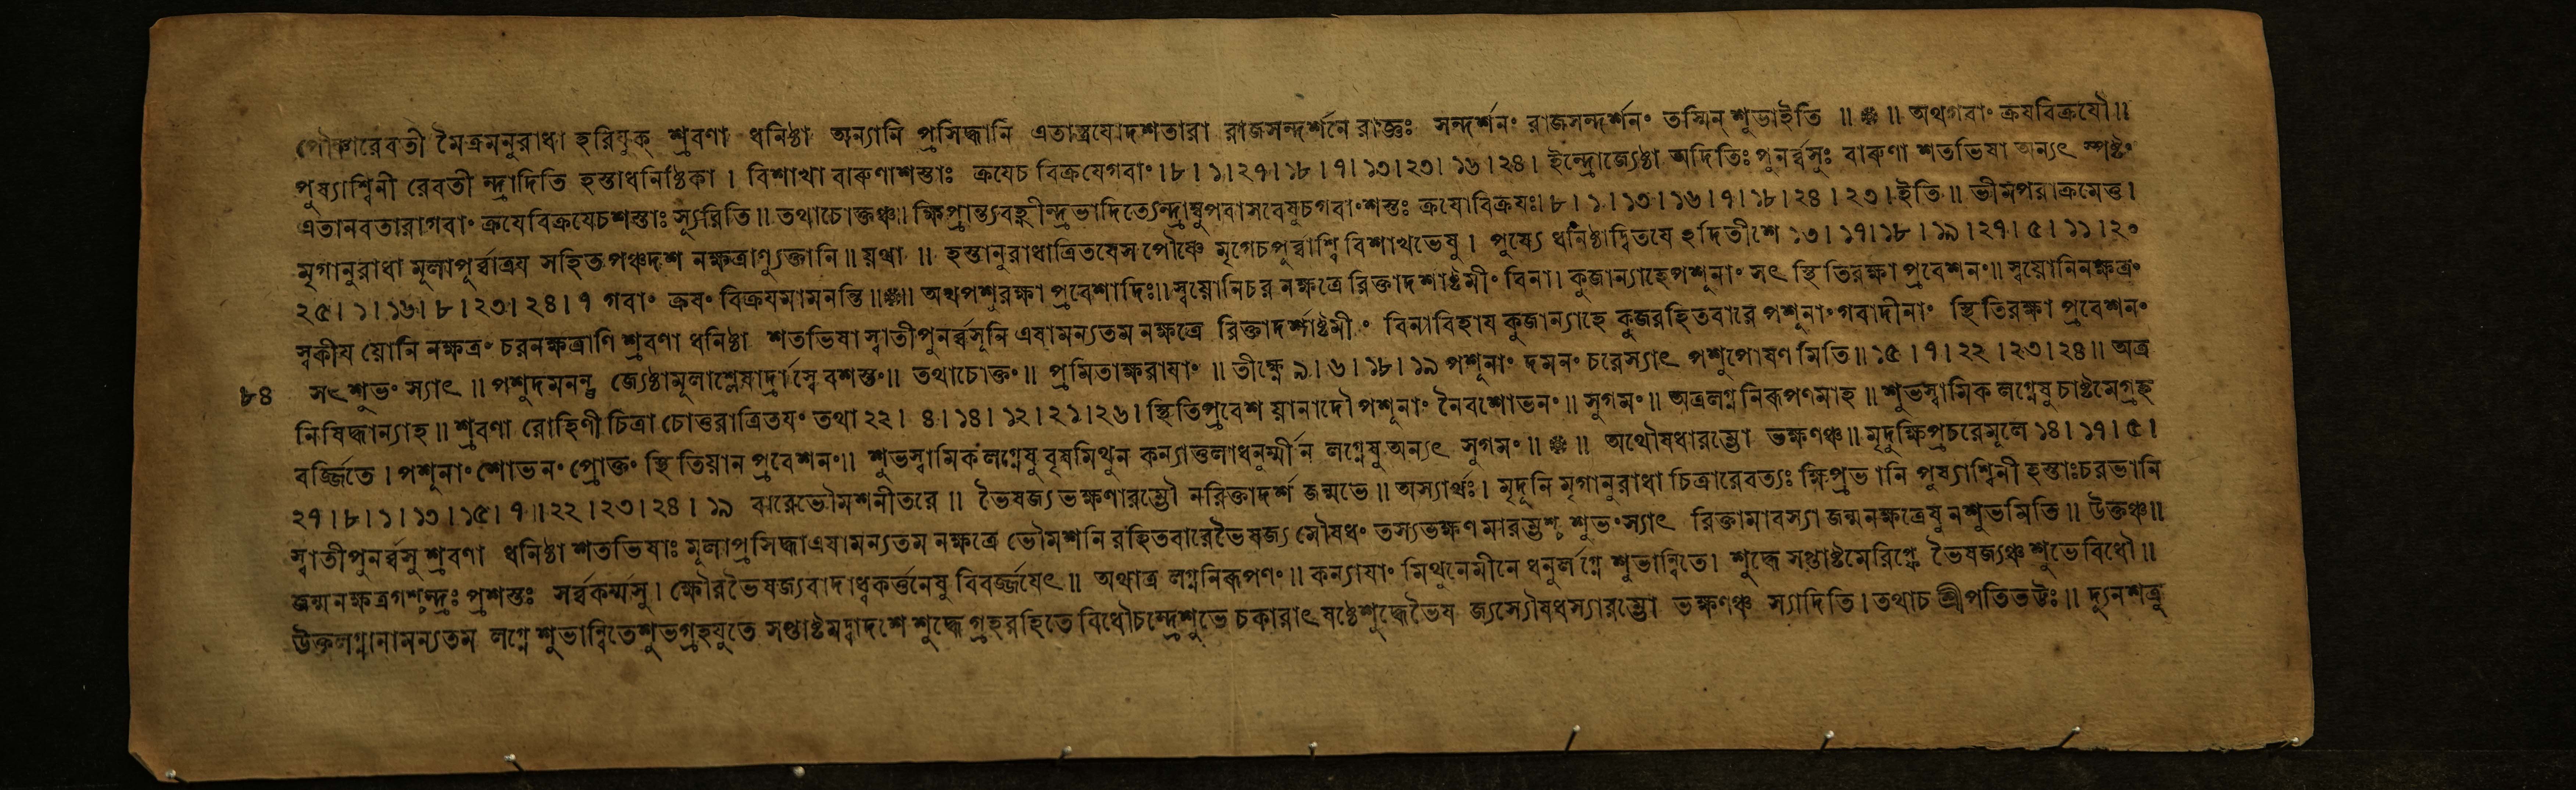 পৌষ্ণারেবতী মৈত্রমনুরাধা হরিযুক্ শ্রবণা ধনিষ্ঠা অন্যানি প্রসিদ্ধানি এতাস্ত্রযোদশতারা রাজসন্দর্শনে রাজ্ঞঃ সন্দর্শনং রাজসন্দর্শনং তস্মিন্ শুভাইতি ॥ ❁ ॥ অথগবাং ক্রযবিক্রযৌ॥
পুষ্যাশ্বিনী রেবতী ন্দ্রাদিতি হস্তাধনিষ্ঠিকা । বিশাখা বারুণাশস্তাঃ ক্রযেচ বিক্রযেগবাং । ৮ । ১ । ২৭ । ১৮ । ৭ । ১৩ । ২৩ । ১৬ । ২৪ । ইন্দ্রোজ্যেষ্ঠা অদিতিঃ পুনর্ব্বসুঃ বারুণা শতভিষা অন্যৎ স্পষ্টং
এতানবতারাগবাং ক্রযেবিক্রযেচশস্তাঃ স্যূরিতি ॥ তথাচোক্তঞ্চ॥ ক্ষিপ্রান্ত্যবহ্ণীন্দ্রভাদিত্যেন্দ্রাম্বুপবাসবেষুচগবাংশস্তঃ ক্রযোবিক্রযঃ। ৮ । ১ । ১৩ । ১৬ । ৭ । ১৮ । ২৪ । ২৩ । ইতি ॥ ভীমপরাক্রমেত্তু ।
মৃগানুরাধা মূলাপূর্ব্বাত্রয সহিত পঞ্চদশ নক্ষত্রাণ্যুক্তানি ॥ যথা ॥ হস্তানুরাধাত্রিতযেস পৌষ্ণে মৃগেচপূর্ব্বাশ্বি বিশাখভেষু । পুষ্যে ধনিষ্ঠাদ্বিতযে হদিতীশে ১৩ । ১৭ । ১৮ । ১৯ । ২৭ । ৫ । ১১ । ২০
২৫ । ১ । ১৬ । ৮ । ২৩ । ২৪ । ৭ গবাং ক্রযং বিক্রযমামনন্তি ॥❁॥ অথপশুরক্ষা প্রবেশাদিঃ॥ স্বয়োনিচর নক্ষত্রে রিক্তাদর্শাষ্টমীং বিনা। কুজান্যাহেপশূনাং সৎ স্থিতিরক্ষা প্রবেশনং॥ স্বয়োনিনক্ষত্রং
স্বকীয যোনি নক্ষত্রং চরনক্ষত্রাণি শ্রবণা ধনিষ্ঠা শতভিষা স্বাতীপুনর্ব্বসূনি এষামন্যতম নক্ষত্রে রিক্তাদর্শাষ্টমীং বিনাবিহায কুজান্যাহে কুজরহিতবারে পশূনাং গবাদীনাং স্থিতিরক্ষা প্রবেশনং
৮৪ সৎ শুভং স্যাৎ ॥ পশুদমনন্তু জ্যেষ্ঠামূলাশ্লেষার্দ্রাস্বেবশস্তং॥ তথাচোক্তং॥ প্রমিতাক্ষরাযাং ॥ তীক্ষ্ণে ৯ । ৬ । ১৮ । ১৯ পশূনাং দমনং চরেস্যাৎ পশুপোষণমিতি ॥ ১৫ । ৭ । ২২ । ২৩ । ২৪ ॥ অত্র
নিষিদ্ধান্যাহ ॥ শ্রবণা রোহিণী চিত্রা চোত্তরাত্রিতযং তথা ২২ । ৪ । ১৪ । ১২ । ২১ । ২৬ । স্থিতিপ্রবেশ যানাদৌ পশূনাং নৈবশোভনং ॥ সুগমং ॥ অত্রলগ্ননিরূপণমাহ ॥ শুভস্বামিক লগ্নেষু চাষ্টমেগ্রহ
বর্জ্জিতে । পশূনাং শোভনং প্রোক্তং স্থিতিযান প্রবেশনং॥ শুভস্বামিকলগ্নেষু বৃষমিথুন কন্যাতুলাধনুর্ম্মীন লগ্নেষু অন্যৎ সুগমং ॥ ❁ ॥ অথৌষধারম্ভো ভক্ষণঞ্চ ॥ মৃদুক্ষিপ্রচরেমূলে ১৪ । ১৭ । ৫ ।
২৭ । ৮ । ১ । ১৩ । ১৫ । ৭ ॥ ২২ । ২৩ । ২৪ । ১৯ বারেভৌমশনীতরে ॥ ভৈষজ্য ভক্ষণারম্ভৌ নরিক্তাদর্শ জন্মভে ॥ অস্যার্থঃ। মৃদূনি মৃগানুরাধা চিত্রারেবত্যঃ ক্ষিপ্রভানি পুষ্যাশ্বিনী হস্তাঃচরভানি
স্বাতীপুনর্ব্বসু শ্রবণা ধনিষ্ঠা শতভিষাঃ মূলাপ্রসিদ্ধাএষামন্যতম নক্ষত্রে ভৌমশনি রহিতবারেভৈষজ্য মৌষধং তস্যভক্ষণ মারম্ভশ্চ শুভংস্যাৎ রিক্তামাবস্যা জন্মনক্ষত্রেষু নশুভমিতি ॥ উক্তঞ্চ॥
জন্মনক্ষত্রগশ্চন্দ্রঃ প্রশস্তঃ সর্ব্বকর্ম্মসু । ক্ষৌরভৈষজ্যবাদাধ্বকর্ত্তনেষু বিবর্জ্জযেৎ ॥ অথাত্র লগ্ননিরূপণং ॥ কন্যাযাং মিথুনেমীনে ধনুর্লগ্নে শুভান্বিতে। শুদ্ধে সপ্তাষ্টমেরিপ্ফে ভৈষজ্যঞ্চ শুভেবিধৌ ॥
উক্তলগ্নানামন্যতম লগ্নে শুভান্বিতেশুভগ্রহযুতে সপ্তাষ্টমদ্বাদশে শুদ্ধে গ্রহরহিতে বিধৌচন্দ্রেশুভে চকারাৎ ষষ্ঠেশুদ্ধেভৈষ জ্যস্যৌষধস্যারম্ভো ভক্ষণঞ্চ স্যাদিতি । তথাচ শ্রীপতিভট্টঃ ॥ দ্যুনশত্রু